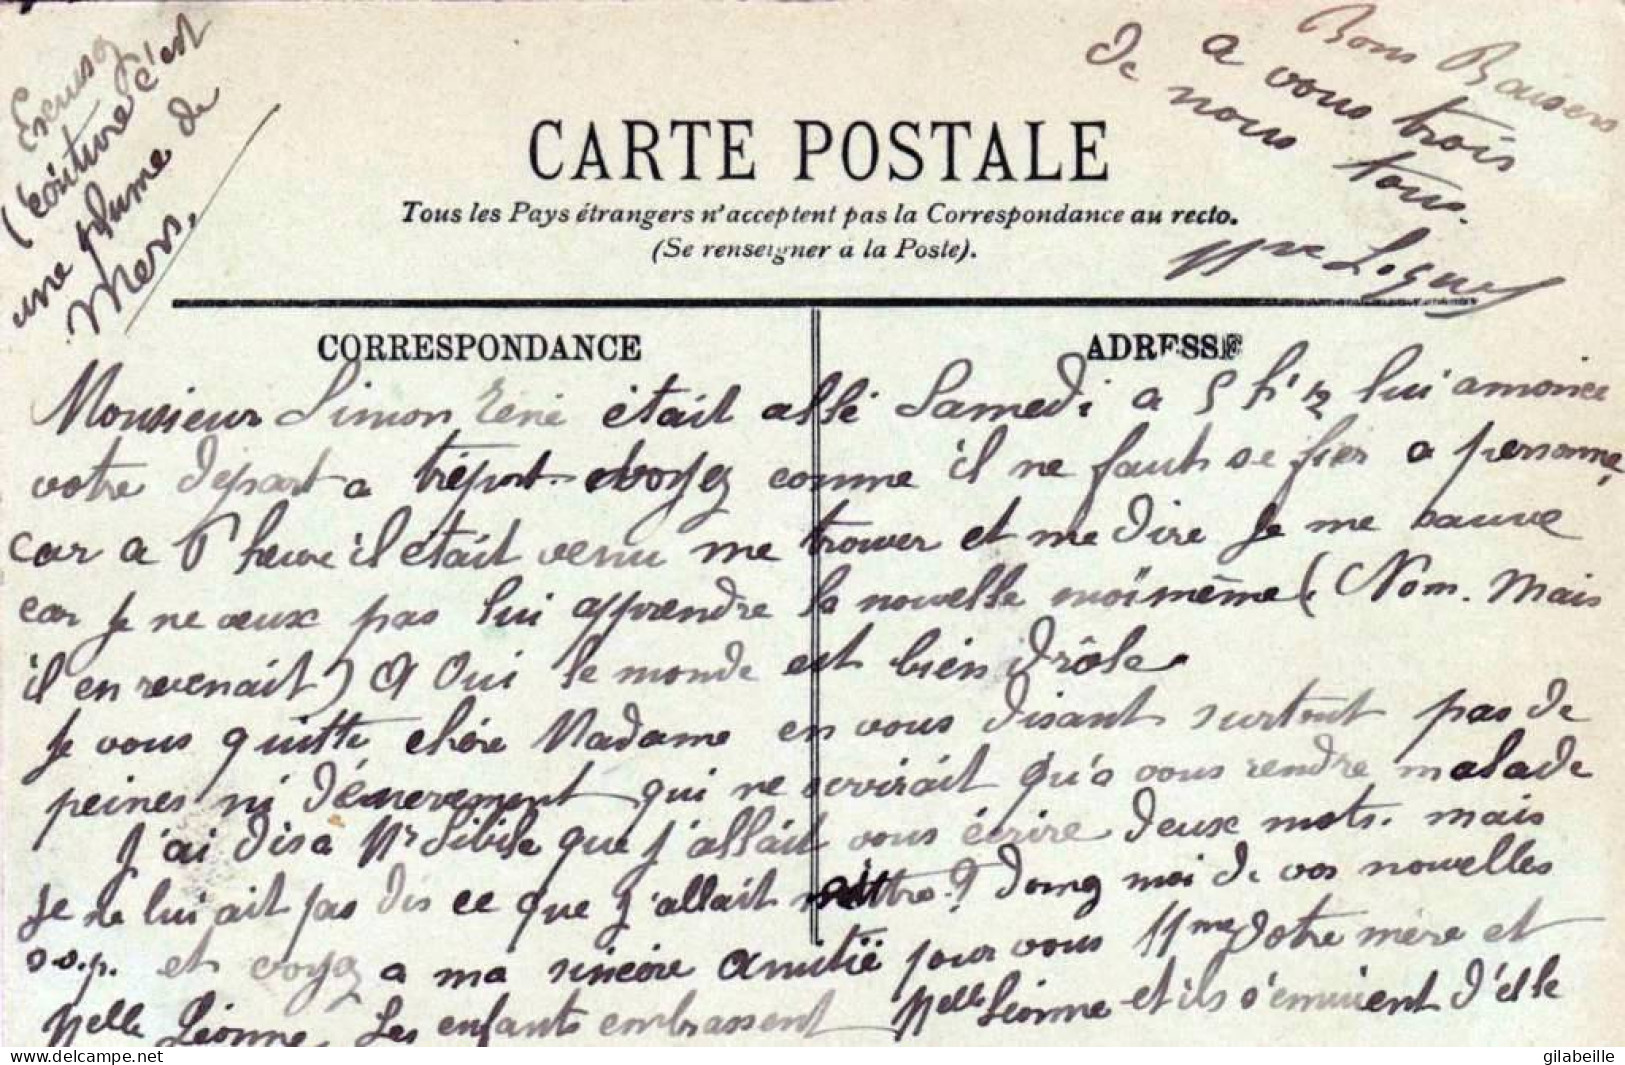 Excusez
l'écriture c'est
une plume de
Mers.
Bons Baisers
a vous trois
de nous tous.
Mme
CARTE POSTALE
Tous les Pays étrangers n'acceptent pas la Correspondance au recto.
(Se renseigner a la Poste).
CORRESPONDANCE
ADRESSE
Monsieur Simon René était allé Samedi a 5 h 1/2 lui anoncé
votre départ a tréport. voyez comme il ne faut se fier a personne,
car a heure il était venu me trouver et me dire Je me sauve
car Je ne veux pas lui apprendre la nouvelle moimême (Nom. Mais
il en revenait) A Oui le monde est bien drôle
Je vous quitte chère Madame en vous disant surtout pas de
peines ni d'énervement qui ne servirait qu'a vous rendre malade
J'ai dis a Mr Sibile que j'allait vous écrire deux mots. mais
Je ne lui ait pas dis ce que J'allait mettre? donez moi de vos nouvelles
s.v.p. et voyez a ma sincère amitié pour vous Mme Votre mère et
Melle Léonne. Les enfants embrassent Melle Léonne et ils s'ennuient d'elle
delcampe.net
gilabeille